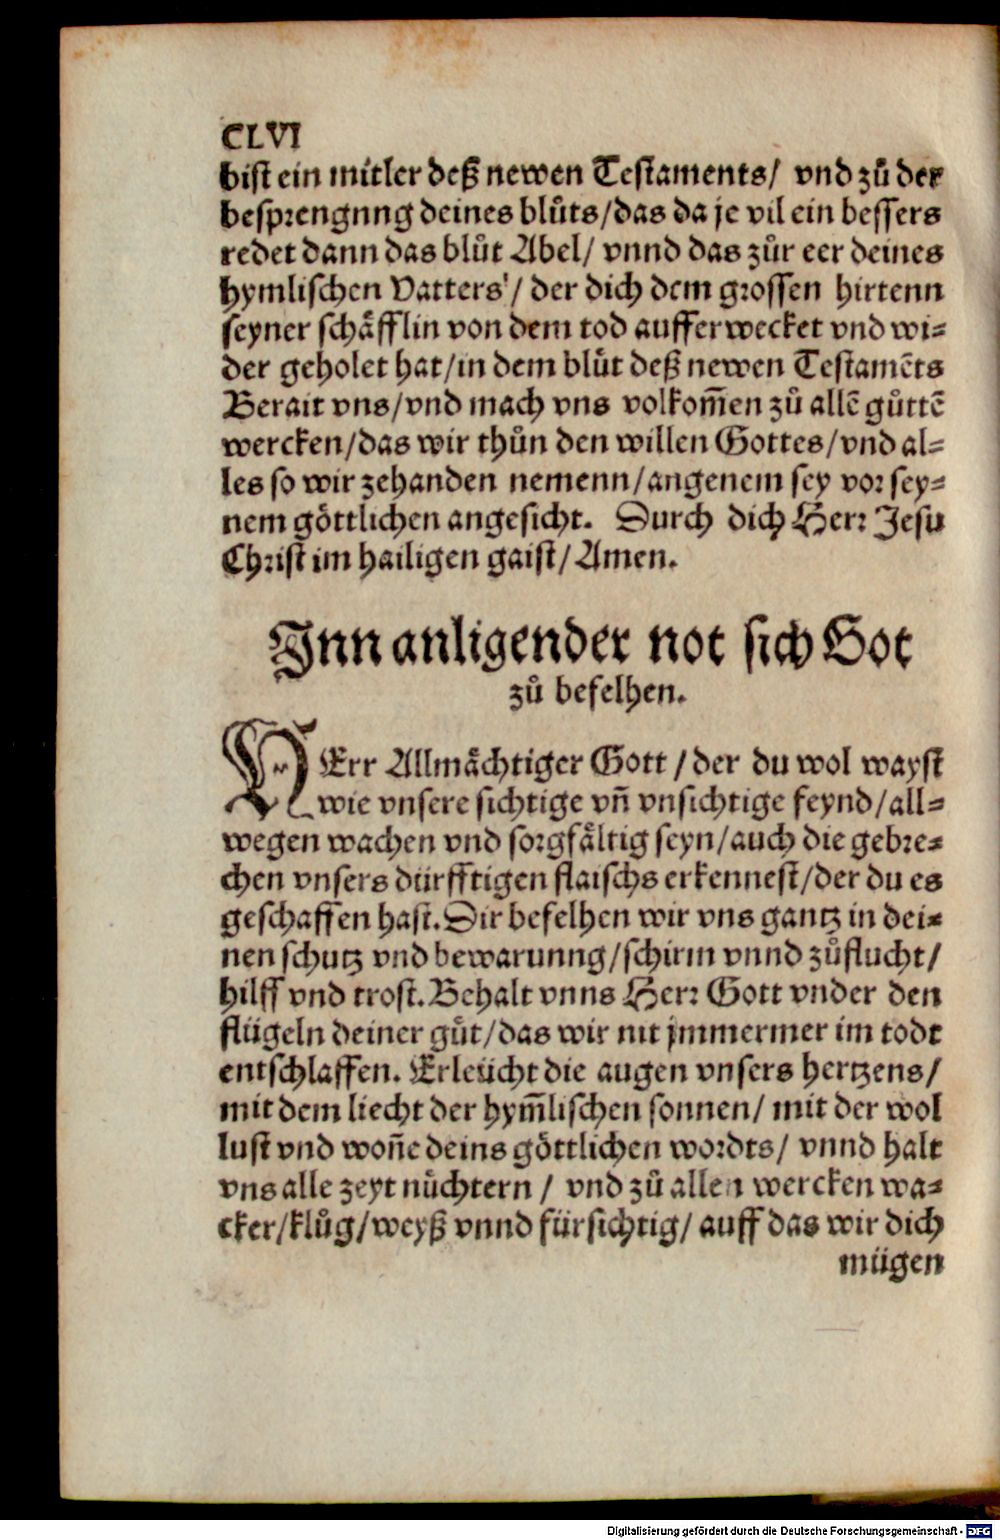 CLVI
bist ein mitler deß newen Testaments/ vnd zů der
besprengnng deines blůts/das da je vil ein bessers
redet dann das blůt Abel/ vnnd das zůr eer deines
hymlischen Vatters'/ der dich dem grossen hirtenn
seyner schäfflin von dem tod aufferwecket vnd wi-
der geholet hat/in dem blůt deß newen Testamēts
Berait vns/vnd mach vns volkom̄en zů allē gůttē
wercken/das wir thůn den willen Gottes/vnd al-
les so wir zehanden nemenn/angenem sey vor sey-
nem göttlichen angesicht. Durch dich Herr Jesu
Christ im hailigen gaist/Amen.
Inn anligender not sich Got
zů befelhen.
HErr Allmächtiger Gott/der du wol wayst
wie vnsere sichtige vn̄ vnsichtige feynd/all-
wegen wachen vnd sorgfältig seyn/auch die gebre-
chen vnsers dürfftigen flaischs erkennest/der du es
geschaffen hast.Dir befelhen wir vns gantz in dei-
nen schutz vnd bewarunng/schirm vnnd zůflucht/
hilff vnd trost.Behalt vnns Herr Gott vnder den
flügeln deiner gůt/das wir nit jmmermer im todt
entschlaffen. Erleücht die augen vnsers hertzens/
mit dem liecht der hym̄lischen sonnen/ mit der wol
lust vnd won̄e deins göttlichen wordts/ vnnd halt
vns alle zeyt nůchtern / vnd zů allen wercken wa-
cker/klůg/weyß vnnd fürsichtig/ auff das wir dich
mügen
Digitalisierung gefördert durch die Deutsche Forschungsgemeinschaft - DFG